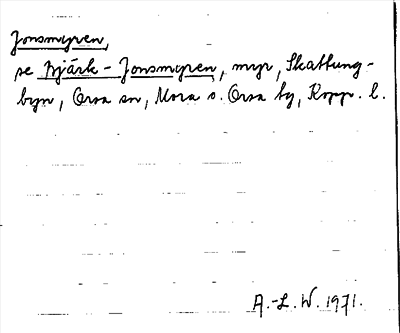 Jonsmyren,
se Bjärk-Jonsmyren, myr, Skattung-
byn, Orsa sn, Mora o. Orsa tg, Kopp. l.
A.-L. W. 1971.